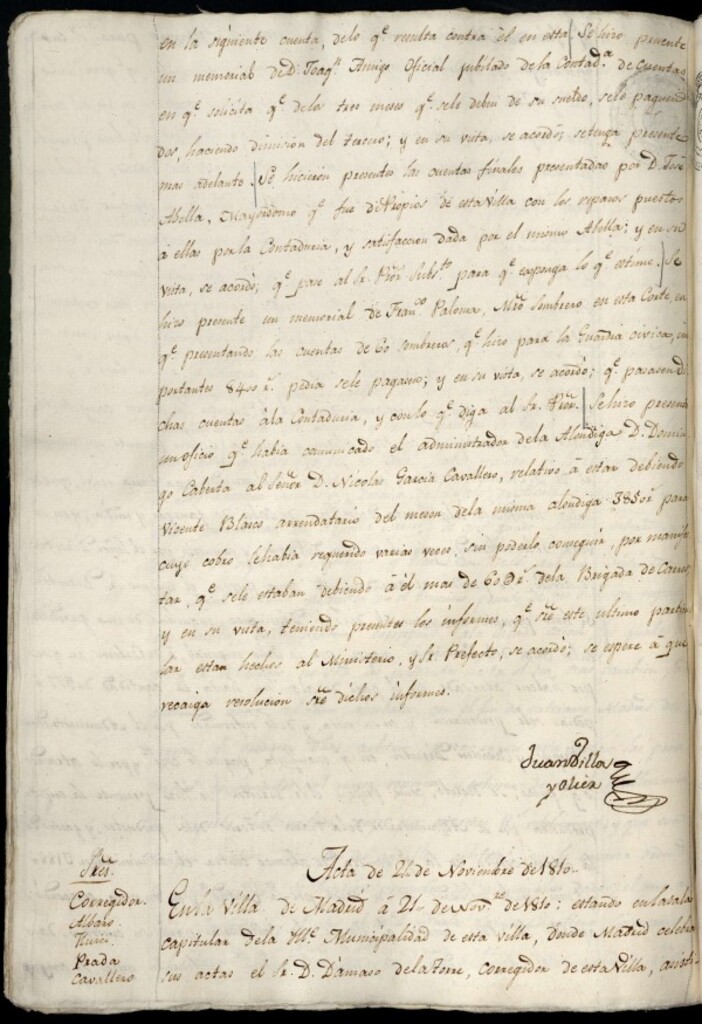 en la siguiente cuenta, delo q.e resulta contra él en esta | Se hizo presente
un memorial de D. Joaq.n Amigo Oficial jubilado de la Contad.a de Cuentas,
en q.e solicita q.e delos tres meses q.e sele deben de su sueldo, sele paguen
dos, haciendo dimision del tercero; y en su vista, se acordó; se tenga presente
mas adelante. | Se hicieron presentes las cuentas finales presentadas por D. José
Abella, Mayordomo q.e fue de Propios de esta Villa con los reparos puestos
á ellas por la Contaduria, y satisfaccion dada por el mismo Abella; y en su
vista, se acordó; q.e pase al Sr. Pror. Subs.to para q.e exponga lo q.e estime. | Se
hizo presente un memorial de Fran.co Paloma, Mro. Sombrero en esta Corte, en
q.e presentando las cuentas de 60 sombreros, q.e hizo para la Guardia civica, im
portantes 8400 r.s pedia sele pagasen; y en su vista, se acordó; q.e pasasen di
chas cuentas ála Contaduria, y con lo q.e diga al Sr. Pror. | Se hizo presente
un oficio q.e habia comunicado el administrador dela Alondiga D. Domin
go Caberta al Señor D. Nicolas Garcia Cavallero, relativo á estar debiendo
Vicente Blasco arrendatario del meson dela misma alondiga 3850 r.s para
cuyo cobro le habia requerido varias veces, sin poderlo conseguir, por manifes
tar, q.e sele estaban debiendo á él mas de 60 @ r.s dela Brigada de Carros,
y en su vista, teniendo presentes los informes, q.e sre este ultimo particu
lar estan hechos al Ministerio, y Sr. Prefecto, se acordó; se espere á que
recaiga resolucion sre dichos informes.
Juan Villa
y Olier
Acta de 21 de Noviembre de 1810.
Sres.
Corregidor.
Albaro
Prada
Cavallero
En la Villa de Madrid á 21 de Nov.re de 1810: estando en la sala
capitular dela Ille. Municipalidad de esta villa, donde Madrid celebra
sus actas el Sr. D. Dámaso dela Torre, corregidor de esta Villa, asisti-